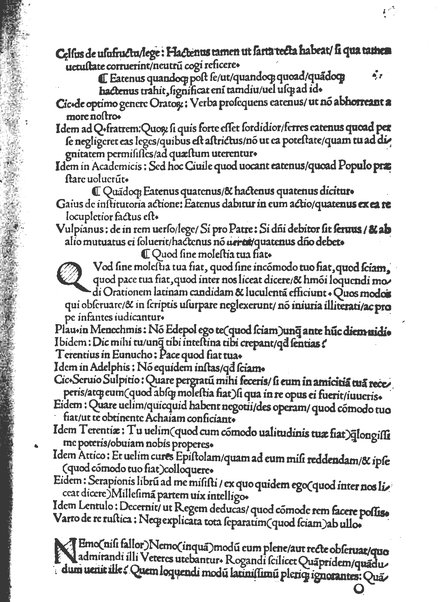 Celsus de usufructu/lege: Hactenus tamen ut sarta tecta habeat/ si qua tamen
uetustate corruerint/neutrũ cogi reficere•
¶ Eatenus quandoqꝫ post se/ut/quandoqꝫ quoad/quãdoqꝫ
hactenus trahit, significat enĩ tamdiu/uel usqꝫ ad id•
Cic• de optimo genere Oratoꝝ: Verba prosequens eatenus/ ut nõ abhorreant a
more nostro•
Idem ad Q•fratrem: Quoꝝ si quis forte esset sordidior/ferres eatenus quoad per
se negligeret eas leges/quibus est astrictus/nõ ut ea potestate/quam tu ad di
gnitatem permisisses/ad quæstum uterentur•
Idem in Academicis: Sed hoc Ciuile quod uocant eatenus/quoad Populo præ
stare uoluerũt•
¶ Quãdoqꝫ Eatenus quatenus/& hactenus quatenus dicitur•
Gaius de institoria actione: Eatenus dabitur in eum actio/quatenus ex ea re
locupletior factus est•
Vulpianus: de in rem uerso/lege/ Si pro Patre: Si dñi debitor sit seruus/& ab
alio mutuatus ei soluerit/hactenus nõ uertit/quatenus dño debet•
¶ Quod sine molestia tua fiat•
QVod sine molestia tua fiat, quod sine incõmodo tuo fiat, quod sciam,
quod pace tua fiat, quod inter nos liceat dicere/& hmõi loquendi mo
di Orationem latinam candidam & luculentã efficiunt• Quos modos
qui obseruare/& in scriptis usurpare neglexerunt/ nõ iniuria illiterati/ac pro
pe infantes iudicantur•
Plau•in Menechmis: Nõ Edepol ego te(quod sciam)unꝗ ante hũc diem uidi•
Ibidem: Dic mihi tu/unꝗ tibi intestina tibi crepant/qđ sentias?
Terentius in Eunucho: Pace quod fiat tua•
Idem in Adelphis: Nõ equidem instas/qđ sciam•
Cic•Seruio Sulpitio: Quare pergratũ mihi feceris/ si eum in amicitiã tuã rece
peris/atqꝫ eum(quod absqꝫ molestia fiat)si qua in re opus ei fuerit/iuueris•
Eidem: Quare uelim/quicquid habent negotii/des operam/ quod cõmodo tuo
fiat/ut te obtinente Achaiam conficiant•
Idem Terentiæ: Tu uelim(quod cum cõmodo ualitudinis tuæ fiat)ꝗlongissi
me poteris/obuiam nobis properes•
Idem Attico: Et uelim cures Epistolam/quam ad eum misi reddendam/& ipse
(quod cõmodo tuo fiat)colloquere•
Eidem: Serapionis librũ ad me misisti / ex quo quidem ego(quod inter nos li
ceat dicere)Millesimã partem uix intelligo•
Idem Lentulo: Decernit/ ut Regem deducas/ quod cõmode rem facere possis•
Varto de re rustica: Neqꝫ explicata tota separatim(quod sciam)ab ullo•
NEmo(nisi fallor)Nemo(inquã)modũ eum plene/aut recte obseruat/quo
admirandi illi Veteres utebantur• Rogandi scilicet Quãpridem/quãdu
dum uenit ille? Quem loquendi modũ latinissimũ pleriqꝫ ignorantes: Quã